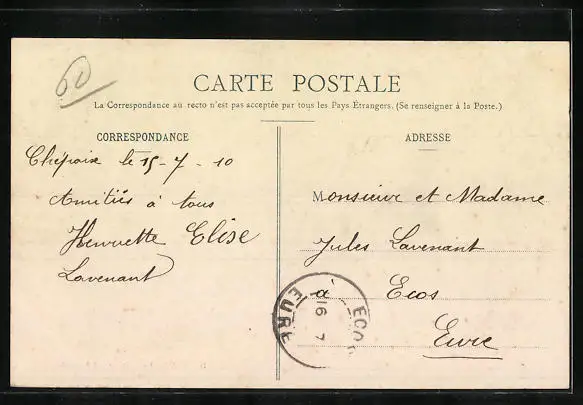 60
CARTE POSTALE
La Correspondance au recto n'est pas acceptée par tous les Pays Étrangers. (Se renseigner à la Poste.)
CORRESPONDANCE
le 15-7-10
Amitiés à tous
Henriette Elise
Lavenant
ADRESSE
Monsieur et Madame
Jules Lavenant
à Ecos
Eure
ECOS
16 7
EURE